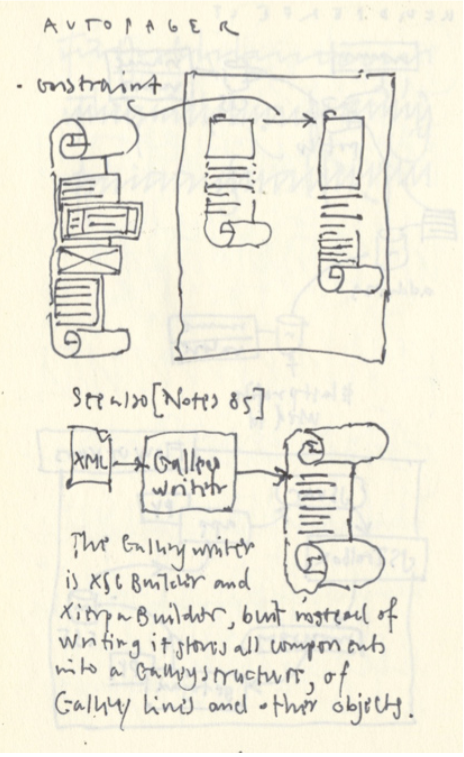 AUTOPAGER
· constraint
See also [Notes 85]
XML
Galley
writer
The Galleywriter
is XSL Builder and
Builder, but instead of
writing it stores all components
into a Galleystructure, of
Galley lines and other objects.